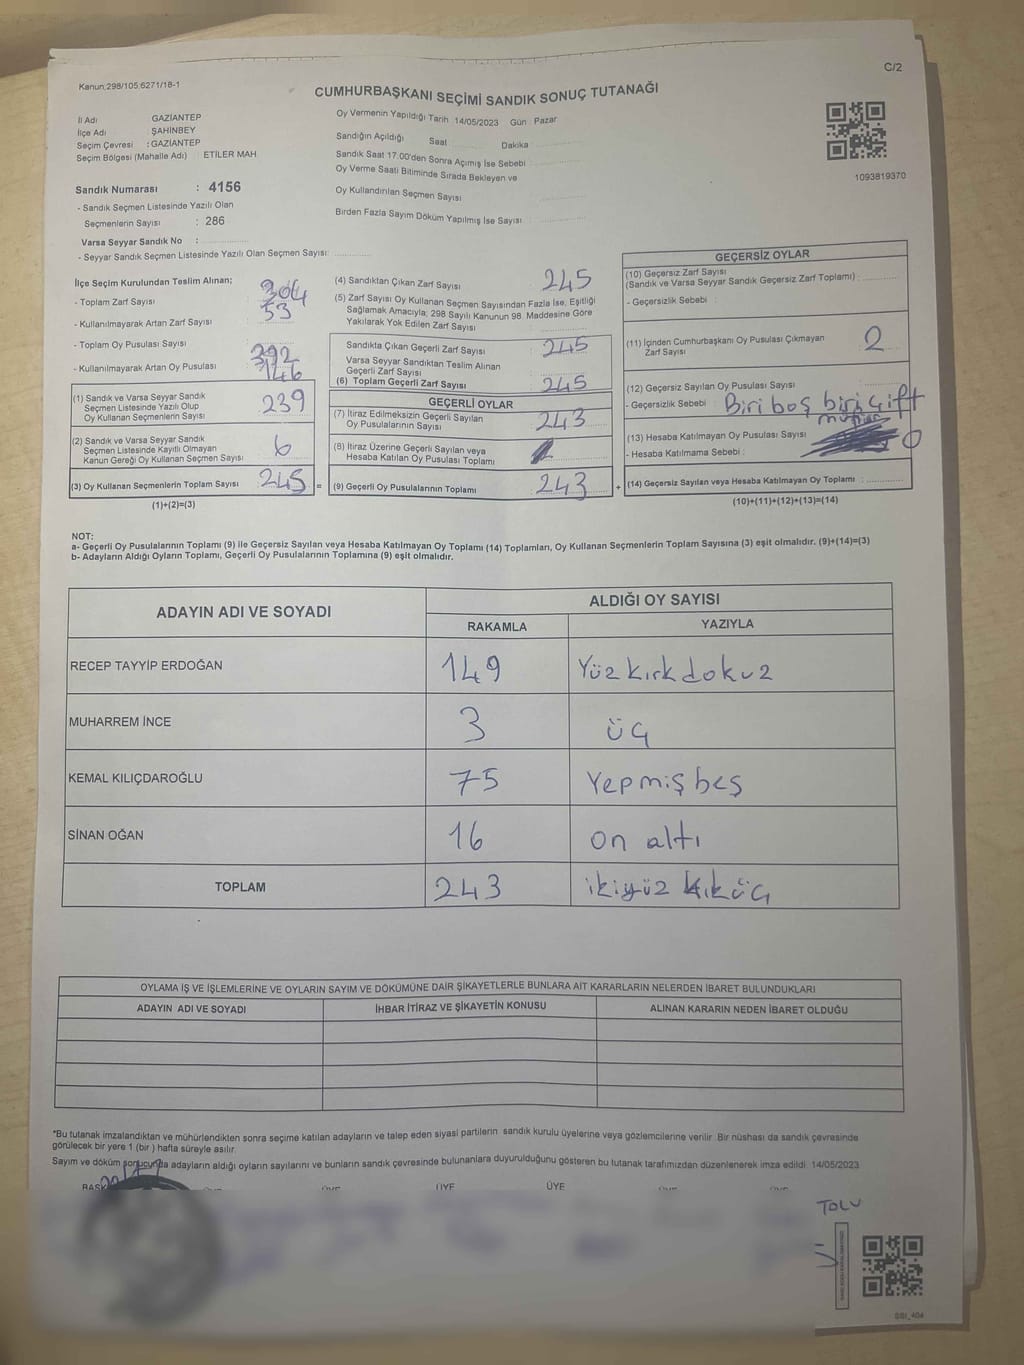 C/2
Kanun;298/105;6271/18-1
CUMHURBAŞKANI SEÇİMİ SANDIK SONUÇ TUTANAĞI
İl Adı GAZIANTEP
İlçe Adı : ŞAHİNBEY
Seçim Çevresi : GAZİANTEP
Seçim Bölgesi (Mahalle Adı) : ETİLER MAH
Sandık Numarası : 4156
- Sandık Seçmen Listesinde Yazılı Olan
Seçmenlerin Sayısı : 286
Varsa Seyyar Sandık No :
- Seyyar Sandık Seçmen Listesinde Yazılı Olan Seçmen Sayısı:
Oy Vermenin Yapıldığı Tarih 14/05/2023 Gün : Pazar
Sandığın Açıldığı Saat Dakika
Sandık Saat 17.00'den Sonra Açımış İse Sebebi
Oy Verme Saati Bitiminde Sırada Bekleyen ve
Oy Kullandırılan Seçmen Sayısı
Birden Fazla Sayım Döküm Yapılmış İse Sayısı
1093819370
İlçe Seçim Kurulundan Teslim Alınan;
- Toplam Zarf Sayısı 304
- Kullanılmayarak Artan Zarf Sayısı 53
- Toplam Oy Pusulası Sayısı 392
- Kullanılmayarak Artan Oy Pusulası 146
(1) Sandık ve Varsa Seyyar Sandık
Seçmen Listesinde Yazılı Olup
Oy Kullanan Seçmenlerin Sayısı 239
(2) Sandık ve Varsa Seyyar Sandık
Seçmen Listesinde Kayıtlı Olmayan
Kanun Gereği Oy Kullanan Seçmen Sayısı 6
(3) Oy Kullanan Seçmenlerin Toplam Sayısı 245 =
(1)+(2)=(3)
(4) Sandıktan Çıkan Zarf Sayısı 245
(5) Zarf Sayısı Oy Kullanan Seçmen Sayısından Fazla İse, Eşitliği
Sağlamak Amacıyla; 298 Sayılı Kanunun 98. Maddesine Göre
Yakılarak Yok Edilen Zarf Sayısı
Sandıkta Çıkan Geçerli Zarf Sayısı 245
Varsa Seyyar Sandıktan Teslim Alınan
Geçerli Zarf Sayısı
(6) Toplam Geçerli Zarf Sayısı 245
GEÇERLİ OYLAR
(7) İtiraz Edilmeksizin Geçerli Sayılan
Oy Pusulalarının Sayısı 243
(8) İtiraz Üzerine Geçerli Sayılan veya
Hesaba Katılan Oy Pusulası Toplamı
(9) Geçerli Oy Pusulalarının Toplamı 243 +
GEÇERSİZ OYLAR
(10) Geçersiz Zarf Sayısı
(Sandık ve Varsa Seyyar Sandık Geçersiz Zarf Toplamı) :
- Geçersizlik Sebebi :
(11) İçinden Cumhurbaşkanı Oy Pusulası Çıkmayan
Zarf Sayısı 2
(12) Geçersiz Sayılan Oy Pusulası Sayısı
- Geçersizlik Sebebi : Biri boş biri çift
(13) Hesaba Katılmayan Oy Pusulası Sayısı 0
- Hesaba Katılmama Sebebi :
(14) Geçersiz Sayılan veya Hesaba Katılmayan Oy Toplamı :
(10)+(11)+(12)+(13)=(14)
NOT:
a- Geçerli Oy Pusulalarının Toplamı (9) ile Geçersiz Sayılan veya Hesaba Katılmayan Oy Toplamı (14) Toplamları, Oy Kullanan Seçmenlerin Toplam Sayısına (3) eşit olmalıdır. (9)+(14)=(3)
b- Adayların Aldığı Oyların Toplamı, Geçerli Oy Pusulalarının Toplamına (9) eşit olmalıdır.
ADAYIN ADI VE SOYADI ALDIĞI OY SAYISI
RAKAMLA YAZIYLA
RECEP TAYYİP ERDOĞAN 149 Yüz kırk dokuz
MUHARREM İNCE 3 üç
KEMAL KILIÇDAROĞLU 75 Yepmiş beş
SİNAN OĞAN 16 on altı
TOPLAM 243 ikiyüz kıküç
OYLAMA İŞ VE İŞLEMLERİNE VE OYLARIN SAYIM VE DÖKÜMÜNE DAİR ŞİKAYETLERLE BUNLARA AİT KARARLARIN NELERDEN İBARET BULUNDUKLARI
ADAYIN ADI VE SOYADI İHBAR İTİRAZ VE ŞİKAYETİN KONUSU ALINAN KARARIN NEDEN İBARET OLDUĞU
*Bu tutanak imzalandıktan ve mühürlendikten sonra seçime katılan adayların ve talep eden siyasi partilerin sandık kurulu üyelerine veya gözlemcilerine verilir. Bir nüshası da sandık çevresinde
görülecek bir yere 1 (bir ) hafta süreyle asılır.
Sayım ve döküm sonucunda adayların aldığı oyların sayılarını ve bunların sandık çevresinde bulunanlara duyurulduğunu gösteren bu tutanak tarafımızdan düzenlenerek imza edildi. 14/05/2023
ÜYE ÜYE
TOLU
SSI_404